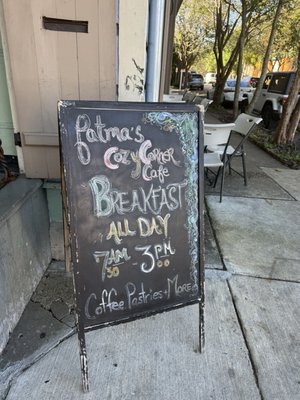 Fatma's
Cozy Corner
Cafe
BREAKFAST
ALL DAY
7:30AM - 3:00PM
Coffee Pastries + More